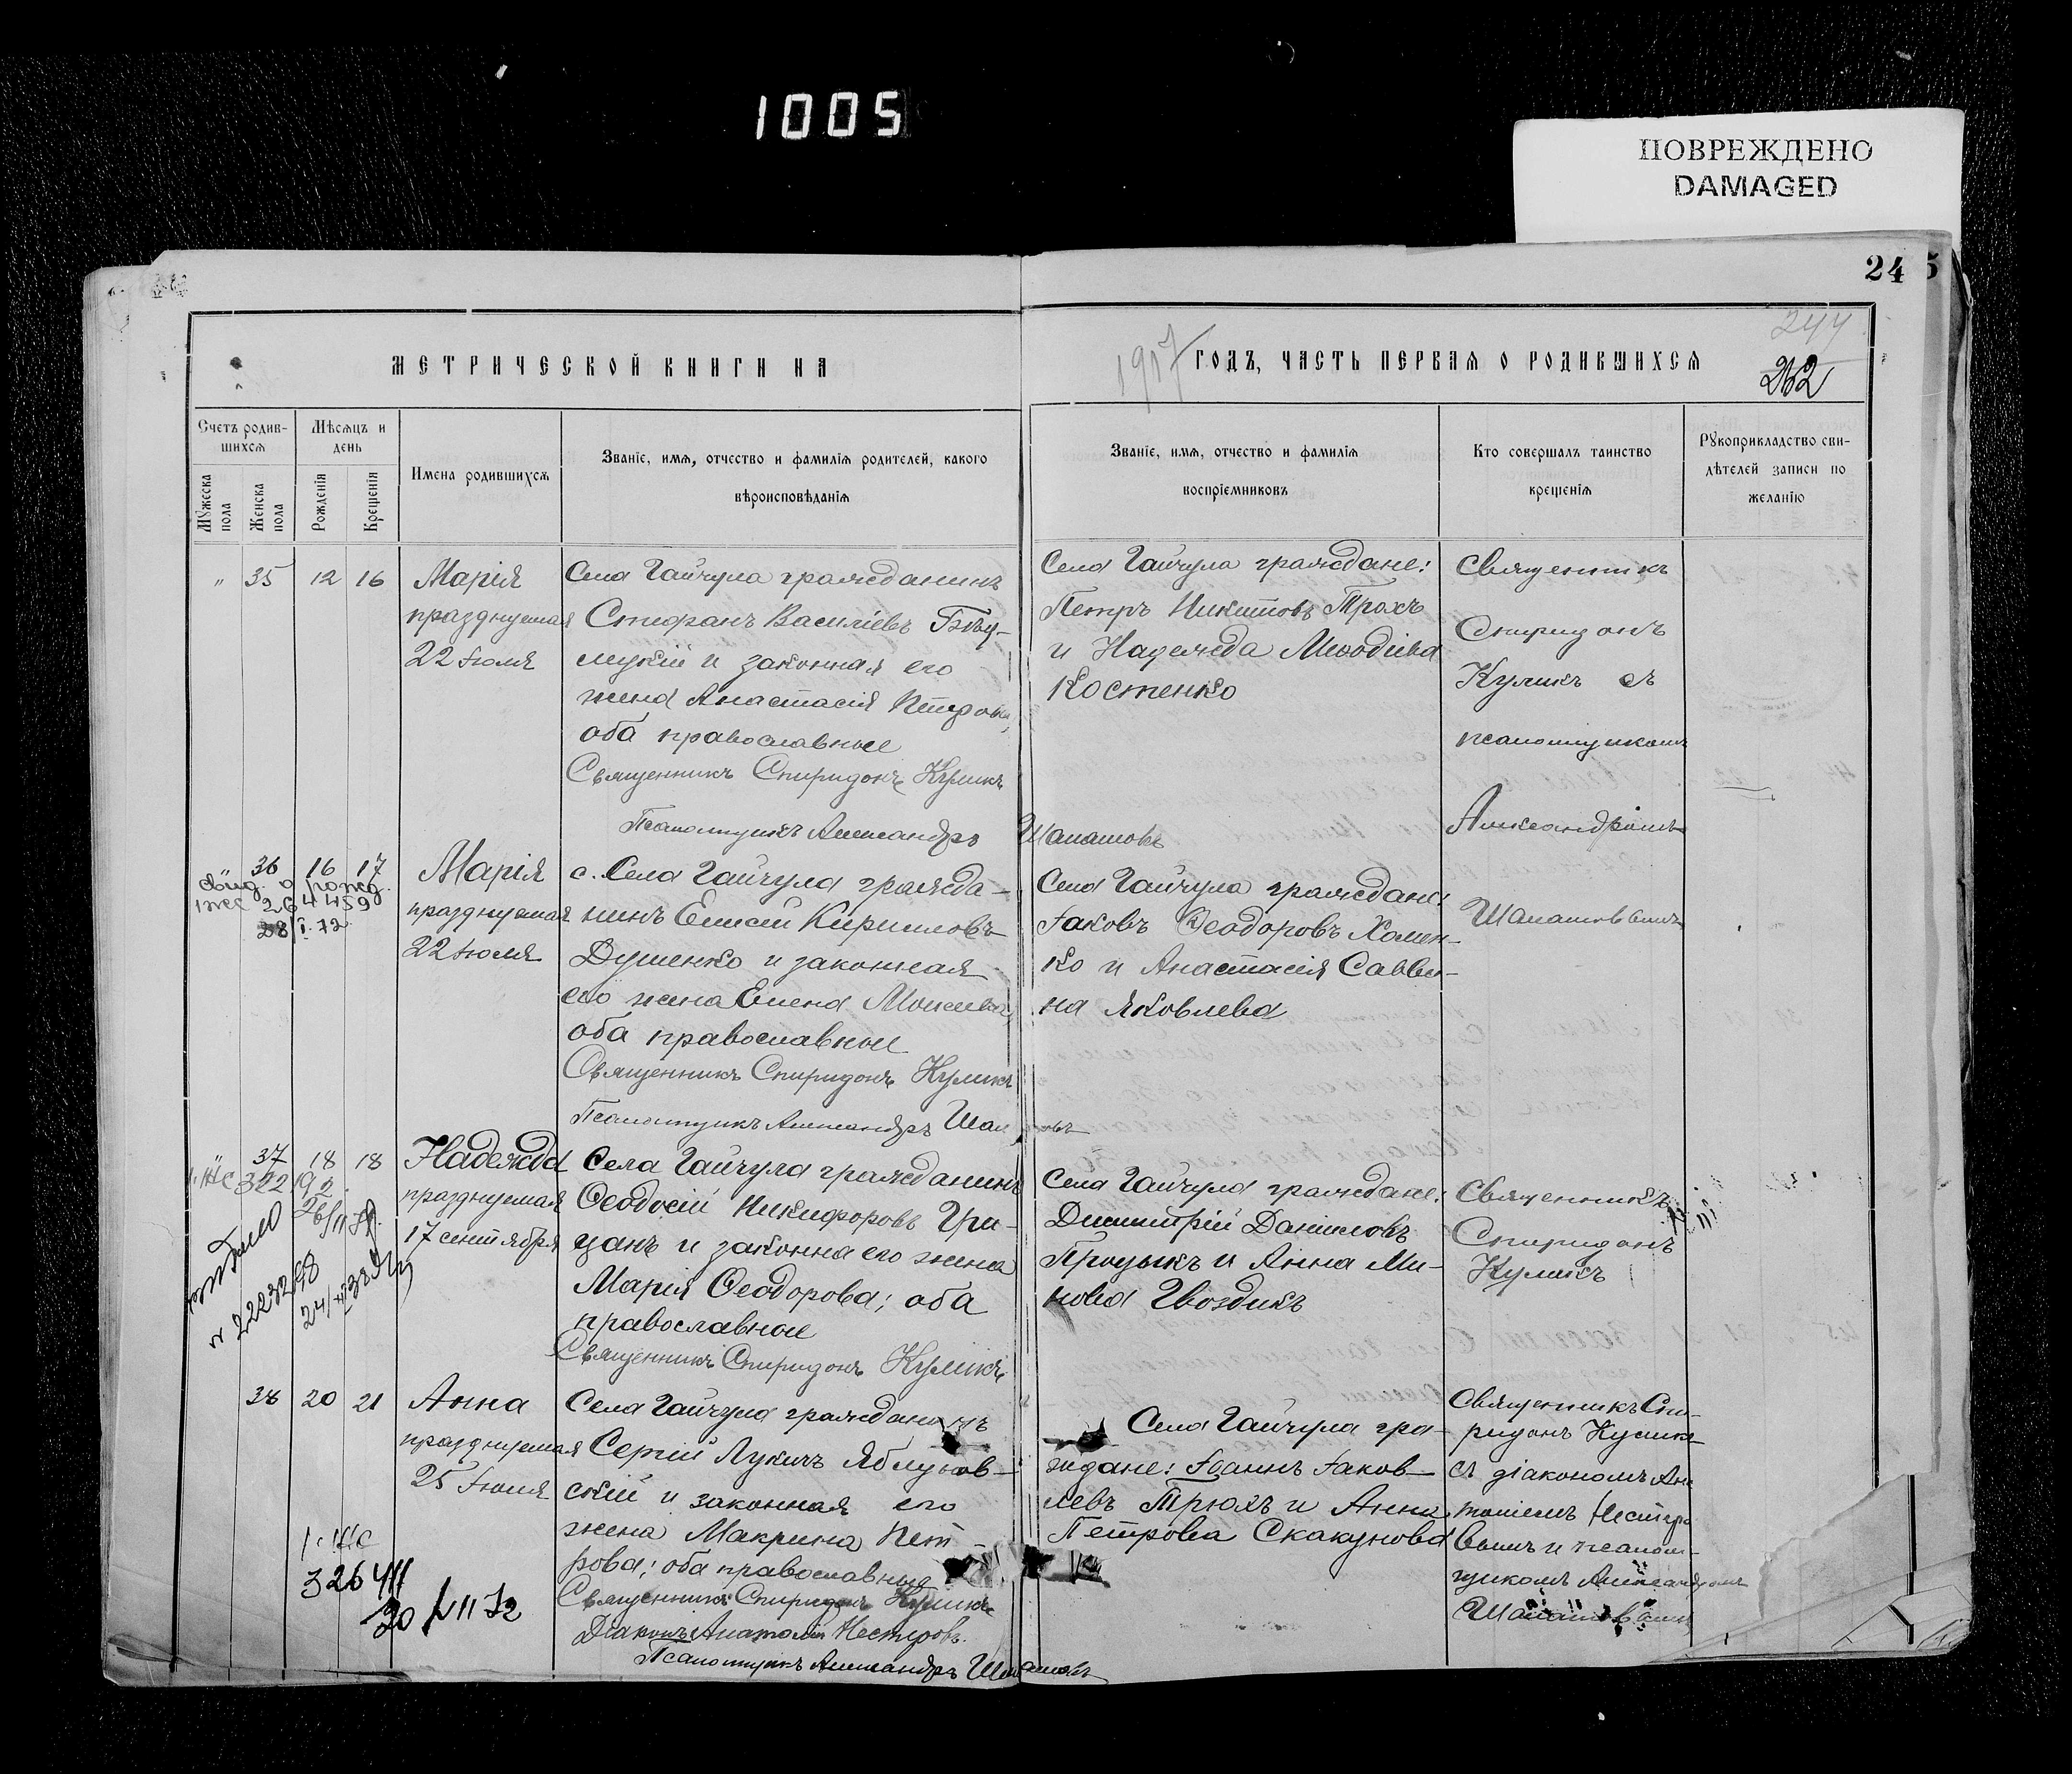 1005
ПОВРЕЖДЕНО
DAMAGED
24 5
244
МЕТРИЧЕСКОЙ КНИГИ НА
1917 ГОДЪ, ЧАСТЬ ПЕРВАЯ О РОДИВШИХСЯ
262
Счетъ родив-
шихся
Мѣсяцъ и
день
Мужеска
пола
Женска
пола
Рожденія
Крещенія
Имена родившихся
Званіе, имя, отчество и фамилія родителей, какого
вѣроисповѣданія
Званіе, имя, отчество и фамилія
воспріемниковъ
Кто совершалъ таинство
крещенія
Рукоприкладство сви-
дѣтелей записи по
желанію
" 35 12 16
Марія
празднуемая
22 Іюля
Села Гайчула гражданинъ
Стефанъ Василіевъ
и законная его
жена Анастасія Петрова,
оба православные
Священникъ Спиридонъ Куликъ
Псаломщикъ Александръ Шапатовъ
Села Гайчула граждане:
Петръ Никитовъ Трохъ
и Надежда Меѳодіева
Костенко
Священникъ
Спиридонъ
Куликъ съ
псаломщикомъ
Александромъ
Шапатовымъ
" 36 16 17
Свид. о рожд.
264459
28/I-72
Марія
празднуемая
22 Іюля
с. Села Гайчула гражда-
нинъ Елисей Кирилловъ
Душенко и законная
его жена Елена Моисеева,
оба православные
Священникъ Спиридонъ Куликъ
Псаломщикъ Александръ Шапатовъ
Села Гайчула граждане:
Іаковъ Ѳеодоровъ Хомен-
ко и Анастасія Савви-
на Яковлева
" 37 18 18
Надежда
празднуемая
17 сентября
Села Гайчула гражданинъ
Ѳеодосій Никифоровъ Гри-
цанъ и законна его жена
Марія Ѳеодорова; оба
православные
Священникъ Спиридонъ Куликъ
Села Гайчула граждане:
Димитрій Даніиловъ
Процыкъ и Анна Ми-
нова Гвоздикъ
Священникъ
Спиридонъ
Куликъ
38 20 21
Анна
празднуемая
25 Іюля
1-ЖС
326411
30 IV 1172
Села Гайчула гражданинъ
Сергій Лукичъ Яблунов-
скій и законная его
жена Макрина Пет-
рова; оба православные
Священникъ Спиридонъ Куликъ
Діаконъ Анатолій Нестеровъ.
Псаломщикъ Александръ Шапатовъ
Села Гайчула гра-
ждане: Іоаннъ Іаков-
левъ Трюхъ и Анна
Петрова Скакунова
Священникъ Спи-
ридонъ Куликъ
съ діакономъ Ана
толіемъ Нестеро
вымъ и псалом-
щикомъ Александромъ
Шапатовымъ